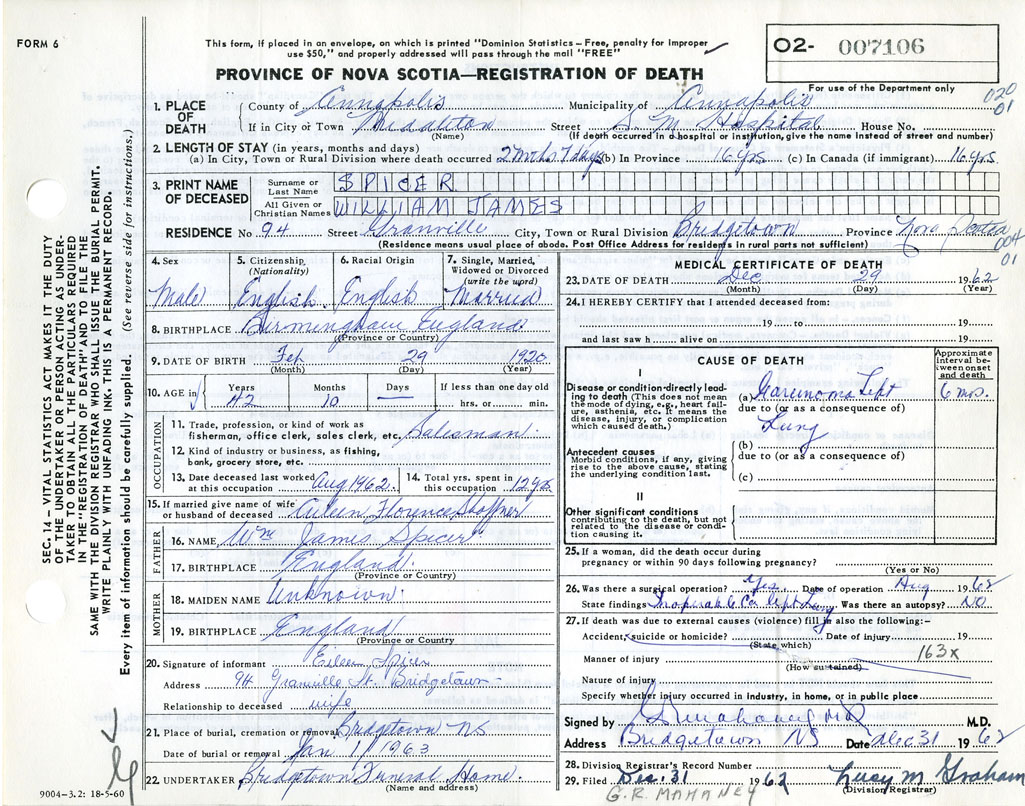 FORM 6
This form, if placed in an envelope, on which is printed "Dominion Statistics – Free, penalty for improper
use $50," and properly addressed will pass through the mail "FREE"
O2- 007106
For use of the Department only
PROVINCE OF NOVA SCOTIA—REGISTRATION OF DEATH
020
01
1. PLACE OF DEATH County of Annapolis Municipality of Annapolis
If in City or Town Middleton Street S. M. Hospital House No.
(Name) (If death occurred in a hospital or institution, give the name instead of street and number)
2. LENGTH OF STAY (in years, months and days)
(a) In City, Town or Rural Division where death occurred 2 mths 7 days (b) In Province 16 yrs (c) In Canada (if immigrant) 16 yrs.
3. PRINT NAME OF DECEASED Surname or Last Name SPICER
All Given or Christian Names WILLIAM JAMES
RESIDENCE No 94 Street Granville City, Town or Rural Division Bridgetown Province Nova Scotia
(Residence means usual place of abode. Post Office Address for residents in rural parts not sufficient)
004
01
4. Sex Male
5. Citizenship (Nationality) English
6. Racial Origin English
7. Single, Married, Widowed or Divorced (write the word) Married
8. BIRTHPLACE Birmingham England
(Province or Country)
9. DATE OF BIRTH Feb 29 1920
(Month) (Day) (Year)
10. AGE in Years 42 Months 10 Days — If less than one day old hrs. or min.
OCCUPATION
11. Trade, profession, or kind of work as
fisherman, office clerk, sales clerk, etc. Salesman
12. Kind of industry or business, as fishing,
bank, grocery store, etc.
13. Date deceased last worked at this occupation Aug 1962
14. Total yrs. spent in this occupation 12 yrs
15. If married give name of wife or husband of deceased Florence Shaffner
FATHER
16. NAME Wm James Spicer
17. BIRTHPLACE England
(Province or Country)
MOTHER
18. MAIDEN NAME Unknown
19. BIRTHPLACE England
(Province or Country)
20. Signature of informant Eileen Spicer
Address 94 Granville St. Bridgetown
Relationship to deceased wife
21. Place of burial, cremation or removal Bridgetown NS
Date of burial or removal Jan 1 1963
22. UNDERTAKER Bridgetown Funeral Home.
(Name and address)
9004-3.2: 18-5-60
MEDICAL CERTIFICATE OF DEATH
23. DATE OF DEATH Dec 29 1962
(Month) (Day) (Year)
24. I HEREBY CERTIFY that I attended deceased from:
19 to 19
and last saw h alive on 19
CAUSE OF DEATH
Approximate interval between onset and death
I
Disease or condition directly leading
to death (This does not mean
the mode of dying, e.g., heart failure,
asthenia, etc. It means the
disease, injury, or complication
which caused death.)
(a) Carcinoma Left 6 mos.
due to (or as a consequence of)
Lung
(b)
due to (or as a consequence of)
(c)
Antecedent causes
Morbid conditions, if any, giving
rise to the above cause, stating
the underlying condition last.
II
Other significant conditions
contributing to the death, but not
related to the disease or condition
causing it.
25. If a woman, did the death occur during
pregnancy or within 90 days following pregnancy?
(Yes or No)
26. Was there a surgical operation? Yes Date of operation Aug 1962
State findings Inoperable Ca Left Lung Was there an autopsy? NO
27. If death was due to external causes (violence) fill in also the following:-
Accident, suicide or homicide? Date of injury 19
(State which)
163x
Manner of injury
(How sustained)
Nature of injury
Specify whether injury occurred in industry, in home, or in public place
Signed by M.D.
Address Bridgetown NS Date Dec 31 1962
28. Division Registrar's Record Number
29. Filed Dec. 31 1962 Lucy M Graham
(Division Registrar)
G.R MAHANEY
SEC. 14 – VITAL STATISTICS ACT MAKES IT THE DUTY
OF THE UNDERTAKER OR PERSON ACTING AS UNDERTAKER
TO OBTAIN ALL THE PARTICULARS REQUIRED
IN THE "REGISTRATION OF DEATH" AND TO FILE THE
SAME WITH THE DIVISION REGISTRAR WHO SHALL ISSUE THE BURIAL PERMIT.
WRITE PLAINLY WITH UNFADING INK. THIS IS A PERMANENT RECORD.
Every item of information should be carefully supplied. (See reverse side for instructions.)